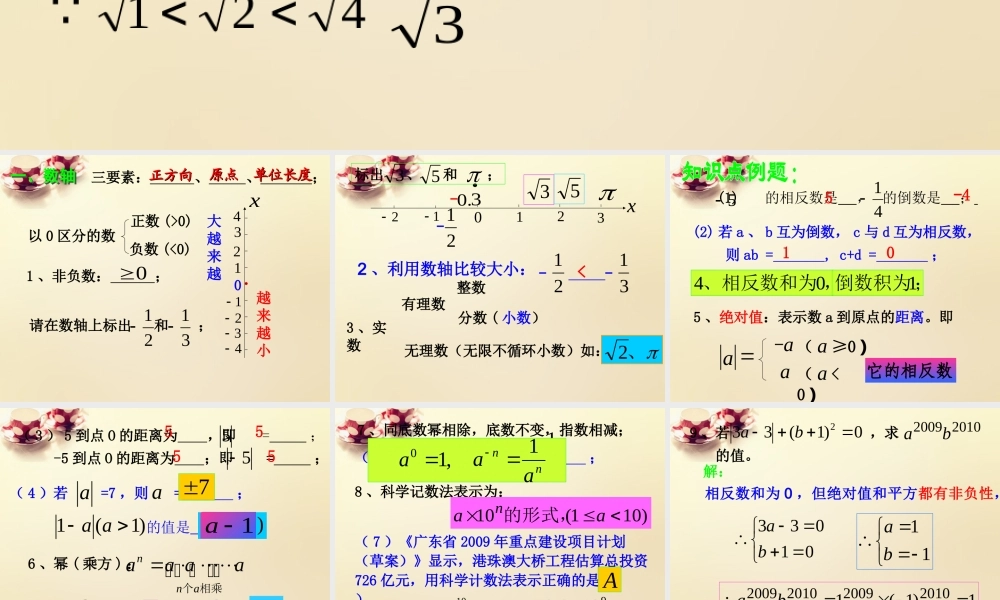 ∵ √1 < √2 < √4 √3
一、数轴 三要素：正方向、原点、单位长度；
以 0 区分的数 正数 (>0)
负数 (<0)
1 、非负数： ≥0 ；
请在数轴上标出 −1/2 和 −1/3 ；
大越来越
x
4
3
2
1
0
−1
−2
−3
−4
越来越小
标出 √3、√5 和 π ；
−0.3
√3 √5 π
−2 −1 0 1 2 3 x
−1/2
2 、利用数轴比较大小： −1/2 < −1/3
整数
有理数
分数 ( 小数)
3 、实数
无理数（无限不循环小数）如： √2、π
知识点例题：
(1) −5 的相反数是 5 ，−1/4 的倒数是 −4 ；
(2) 若 a 、 b 互为倒数， c 与 d 互为相反数，
则 ab = 1 ，c+d = 0 ；
4、相反数和为0，倒数积为1；
5 、绝对值：表示数 a 到原点的距离。即
|a| = −a （ a ≥0 ）
a （ a < 0 ）
它的相反数
3 ） 5 到点 O 的距离为 5 ，即 |5| = 5 ；
-5 到点 O 的距离为 5 ；即 |−5| = 5 ；
( 4 ) 若 |a| =7 ，则 a = ±7 ；
|1−a|(a>1) 的值是 a−1 )
6 、幂 ( 乘方 ) ： aⁿ = a·a·⋯·a
n个a相乘
7 、同底数幂相除，底数不变，指数相减；
a⁰ = 1, a⁻ⁿ = 1/aⁿ ；
8 、科学记数法表示为：
a×10ⁿ的形式，(1≤a<10)
( 7 ) 《广东省 2009 年重点建设项目计划
（草案）》显示，港珠澳大桥工程估算总投资
726 亿元，用科学计数法表示正确的是 A
)
9 、若 |3a−3|+(b+1)²=0 ，求 a²⁰⁰⁹b²⁰¹⁰
的值。
解：
相反数和为 0 ，但绝对值和平方都有非负性，
∴ {3a−3=0
b+1=0
∴ {a=1
b=−1
∴ a²⁰⁰⁹b²⁰¹⁰=1²⁰⁰⁹×(−1)²⁰¹⁰=1